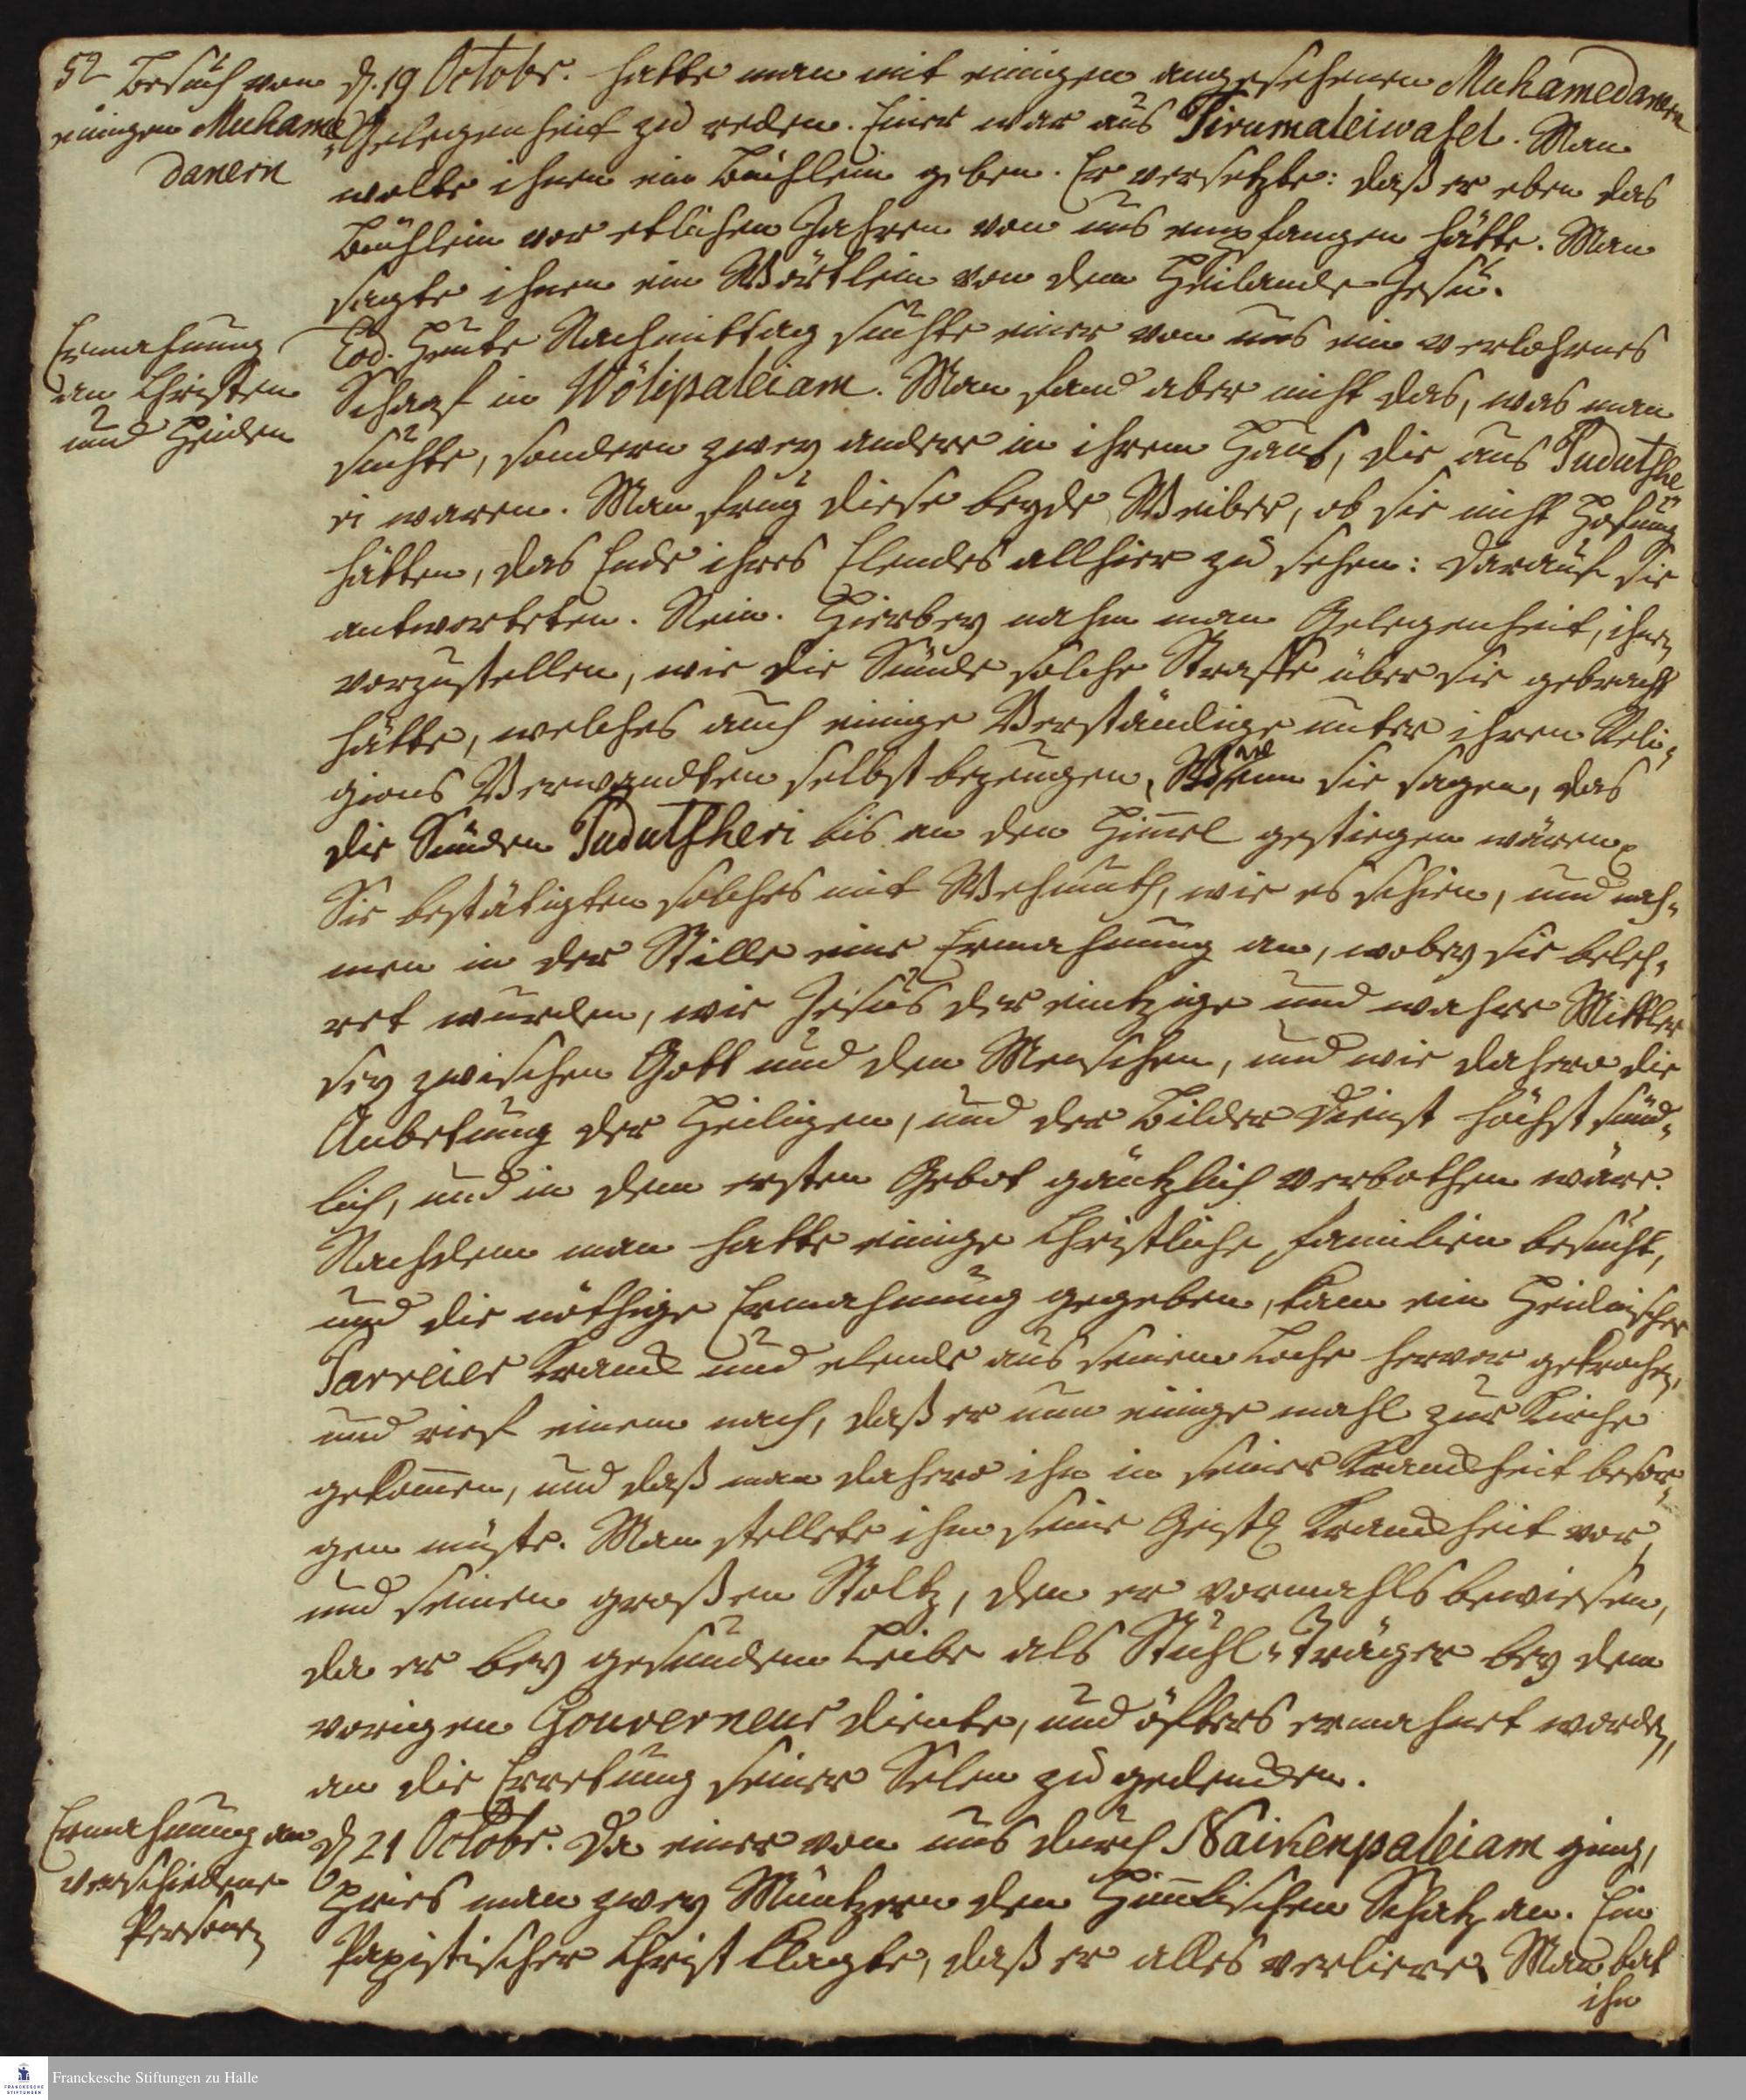 52
Besuch von
einigen Muhame
danern
d. 19 Octobr. hatte man mit einigen angesehenen Muhamedanern
Gelegenheit zu reden. Einer war aus Tirumaleiwasel. Man
wolte ihnen ein Büchlein geben. Er versetzte: daß er eben das
Büchlein vor etlichen Jahren von uns empfangen hätte. Man
sagte ihnen ein Wörtlein von dem Heilande Jesu.
Ermahnung
an Christen
und Heiden
Eod. Heute Nachmittag suchte einer von uns ein verlohrnes
Schaaf in Wölipaleiam. Man fand aber nicht das, was man
suchte, sondern zwey andere in ihrem Haus, die aus Pudutshe
ri waren. Man frug diese beyde Weiber, ob sie nicht Hofnung
hätten, das Ende ihres Elendes allhier zu sehen: darauf sie
antworteten. Nein. Hierbey nahm man Gelegenheit, ihnen
vorzustellen, wie die Sünde solche Straffe über sie gebracht
hätte, welches auch einige Verständige unter ihren Reli-
gions Verwandten selbst bezeugen, Wenn sie sagen, das
die Sünden Pudutsheri bis an den Himel gestiegen wären.
Sie bestätigten solches mit Wehmuth, wie es schien, und nah-
men in der Stille eine Ermahnung an, wobey sie beleh-
ret wurden, wie Jesus der eintzige und wahre Mittler
sey zwischen Gott und den Menschen, und wie dahero die
Anbetung der Heiligen, und der Bilder Dienst höchst sünd-
lich, und in dem ersten Gebot gäntzlich verbothen wäre.
Nachdem man hatte einige Christliche Familien besucht,
und die nöthige Ermahnung gegeben, kam ein Heidnischer
Parreier kranck und elende aus seinem Loche hervor gekrochen,
und rief einem nach, daß er nun einige mahl zur Kirche
gekomen, und daß man dahero ihn in seiner Kranckheit besor-
gen müste. Man stellete ihm seine Geistl Kranckheit vor,
und seinen großen Stoltz, den er vormahls bewiesen,
da er bey gesunden Leibe als Stuhl-Träger bey dem
vorigen Gouverneur diente, und öfters ermahnet worden,
an die Erretung seiner Selen zu gedencken.
Ermahnung an
verschiedene
Personen
d 21 Octobr. Da einer von uns durch Naikenpaleiam ging,
Pries man zwey Müntzern den Himlischen Schatz an. Ein
Papistischer Christ klagte, daß er alles verliere. Man bat
ihn
Franckesche Stiftungen zu Halle
FRANCKESCHE
STIFTUNGEN